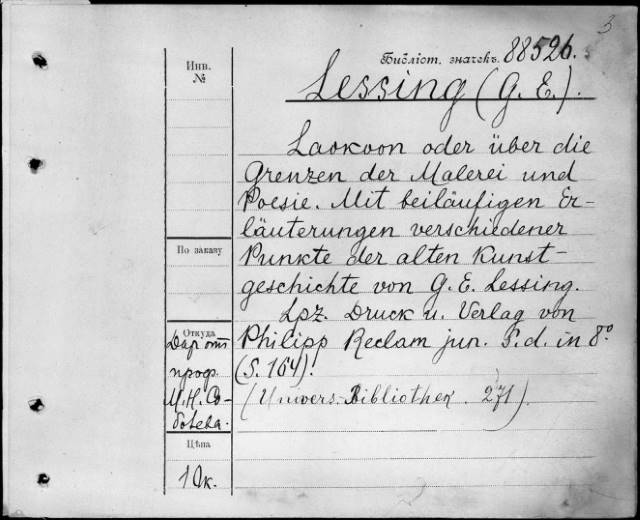 3
Библіот. значекъ. 88526.
Инв.
№
Lessing (G. E.).
Laokoon oder über die
Grenzen der Malerei und
Poesie. Mit beiläufigen Er-
läuterungen verschiedener
По заказу
Punkte der alten Kunst-
geschichte von G. E. Lessing.
Lpz. Druck u. Verlag von
Откуда
Philipp Reclam jun. S. d. in 8º
(S. 164).
(Univers. Bibliothek. 271).
Дар от
проф.
М. Н. Со-
болева.
Цѣна
10к.